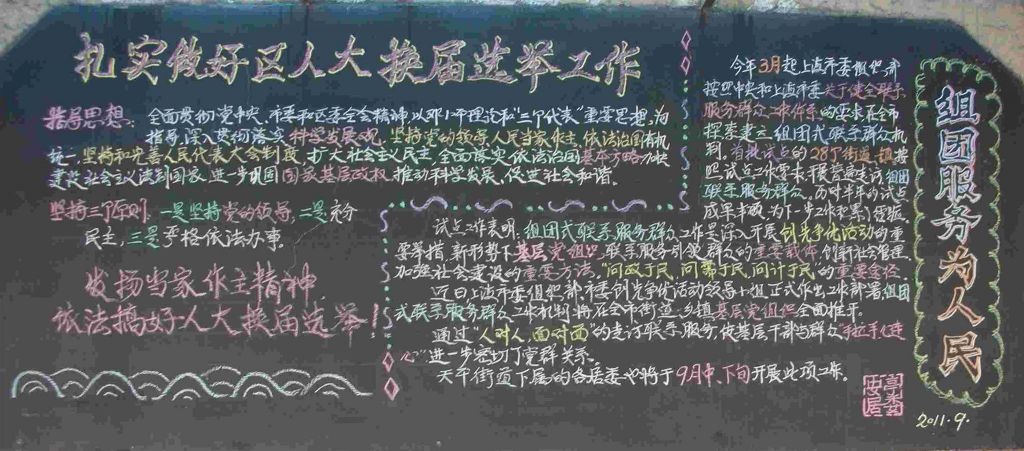 扎实做好区人大换届选举工作
指导思想: 全面贯彻党中央、市委和区委全会精神,以邓小平理论和“三个代表”重要思想为
指导,深入贯彻落实科学发展观,坚持党的领导、人民当家作主、依法治国有机
统一,坚持和完善人民代表大会制度,扩大社会主义民主,全面落实依法治国基本方略,加快
建设社会主义法治国家,进一步巩固国家基层政权,推动科学发展、促进社会和谐。
坚持三个原则,一是坚持党的领导,二是充分
民主,三是严格依法办事。
发扬当家作主精神,
依法搞好人大换届选举!
今年3月起上海市委组织部
按照中央和上海市委关于健全联系
服务群众工作体系的要求在全市
探索建立组团式联系群众机
制。首批试点的28个街道、镇按
照试点工作要求,接受走访、组团
联系服务群众。历时半年的试点
成果丰硕,为下一步工作积累了经验。
试点工作表明,组团式联系服务群众工作是深入开展创先争优活动的重
要举措,新形势下基层党组织联系服务引领群众的重要载体,创新社会管理、
加强社会建设的重要方法,“问政于民、问需于民、问计于民”的重要途径。
近日上海市委组织部、市委创先争优活动领导小组正式作出工作部署,组团
式联系服务群众工作机制将在全市街道、乡镇基层党组织全面推开。
通过“人对人,面对面”的走访联系服务,使基层干部与群众“手拉手心连
心”进一步密切了党群关系。
天平街道下属的各居委也将于9月中、下旬开展此项工作。
组团服务为人民
2011.9.